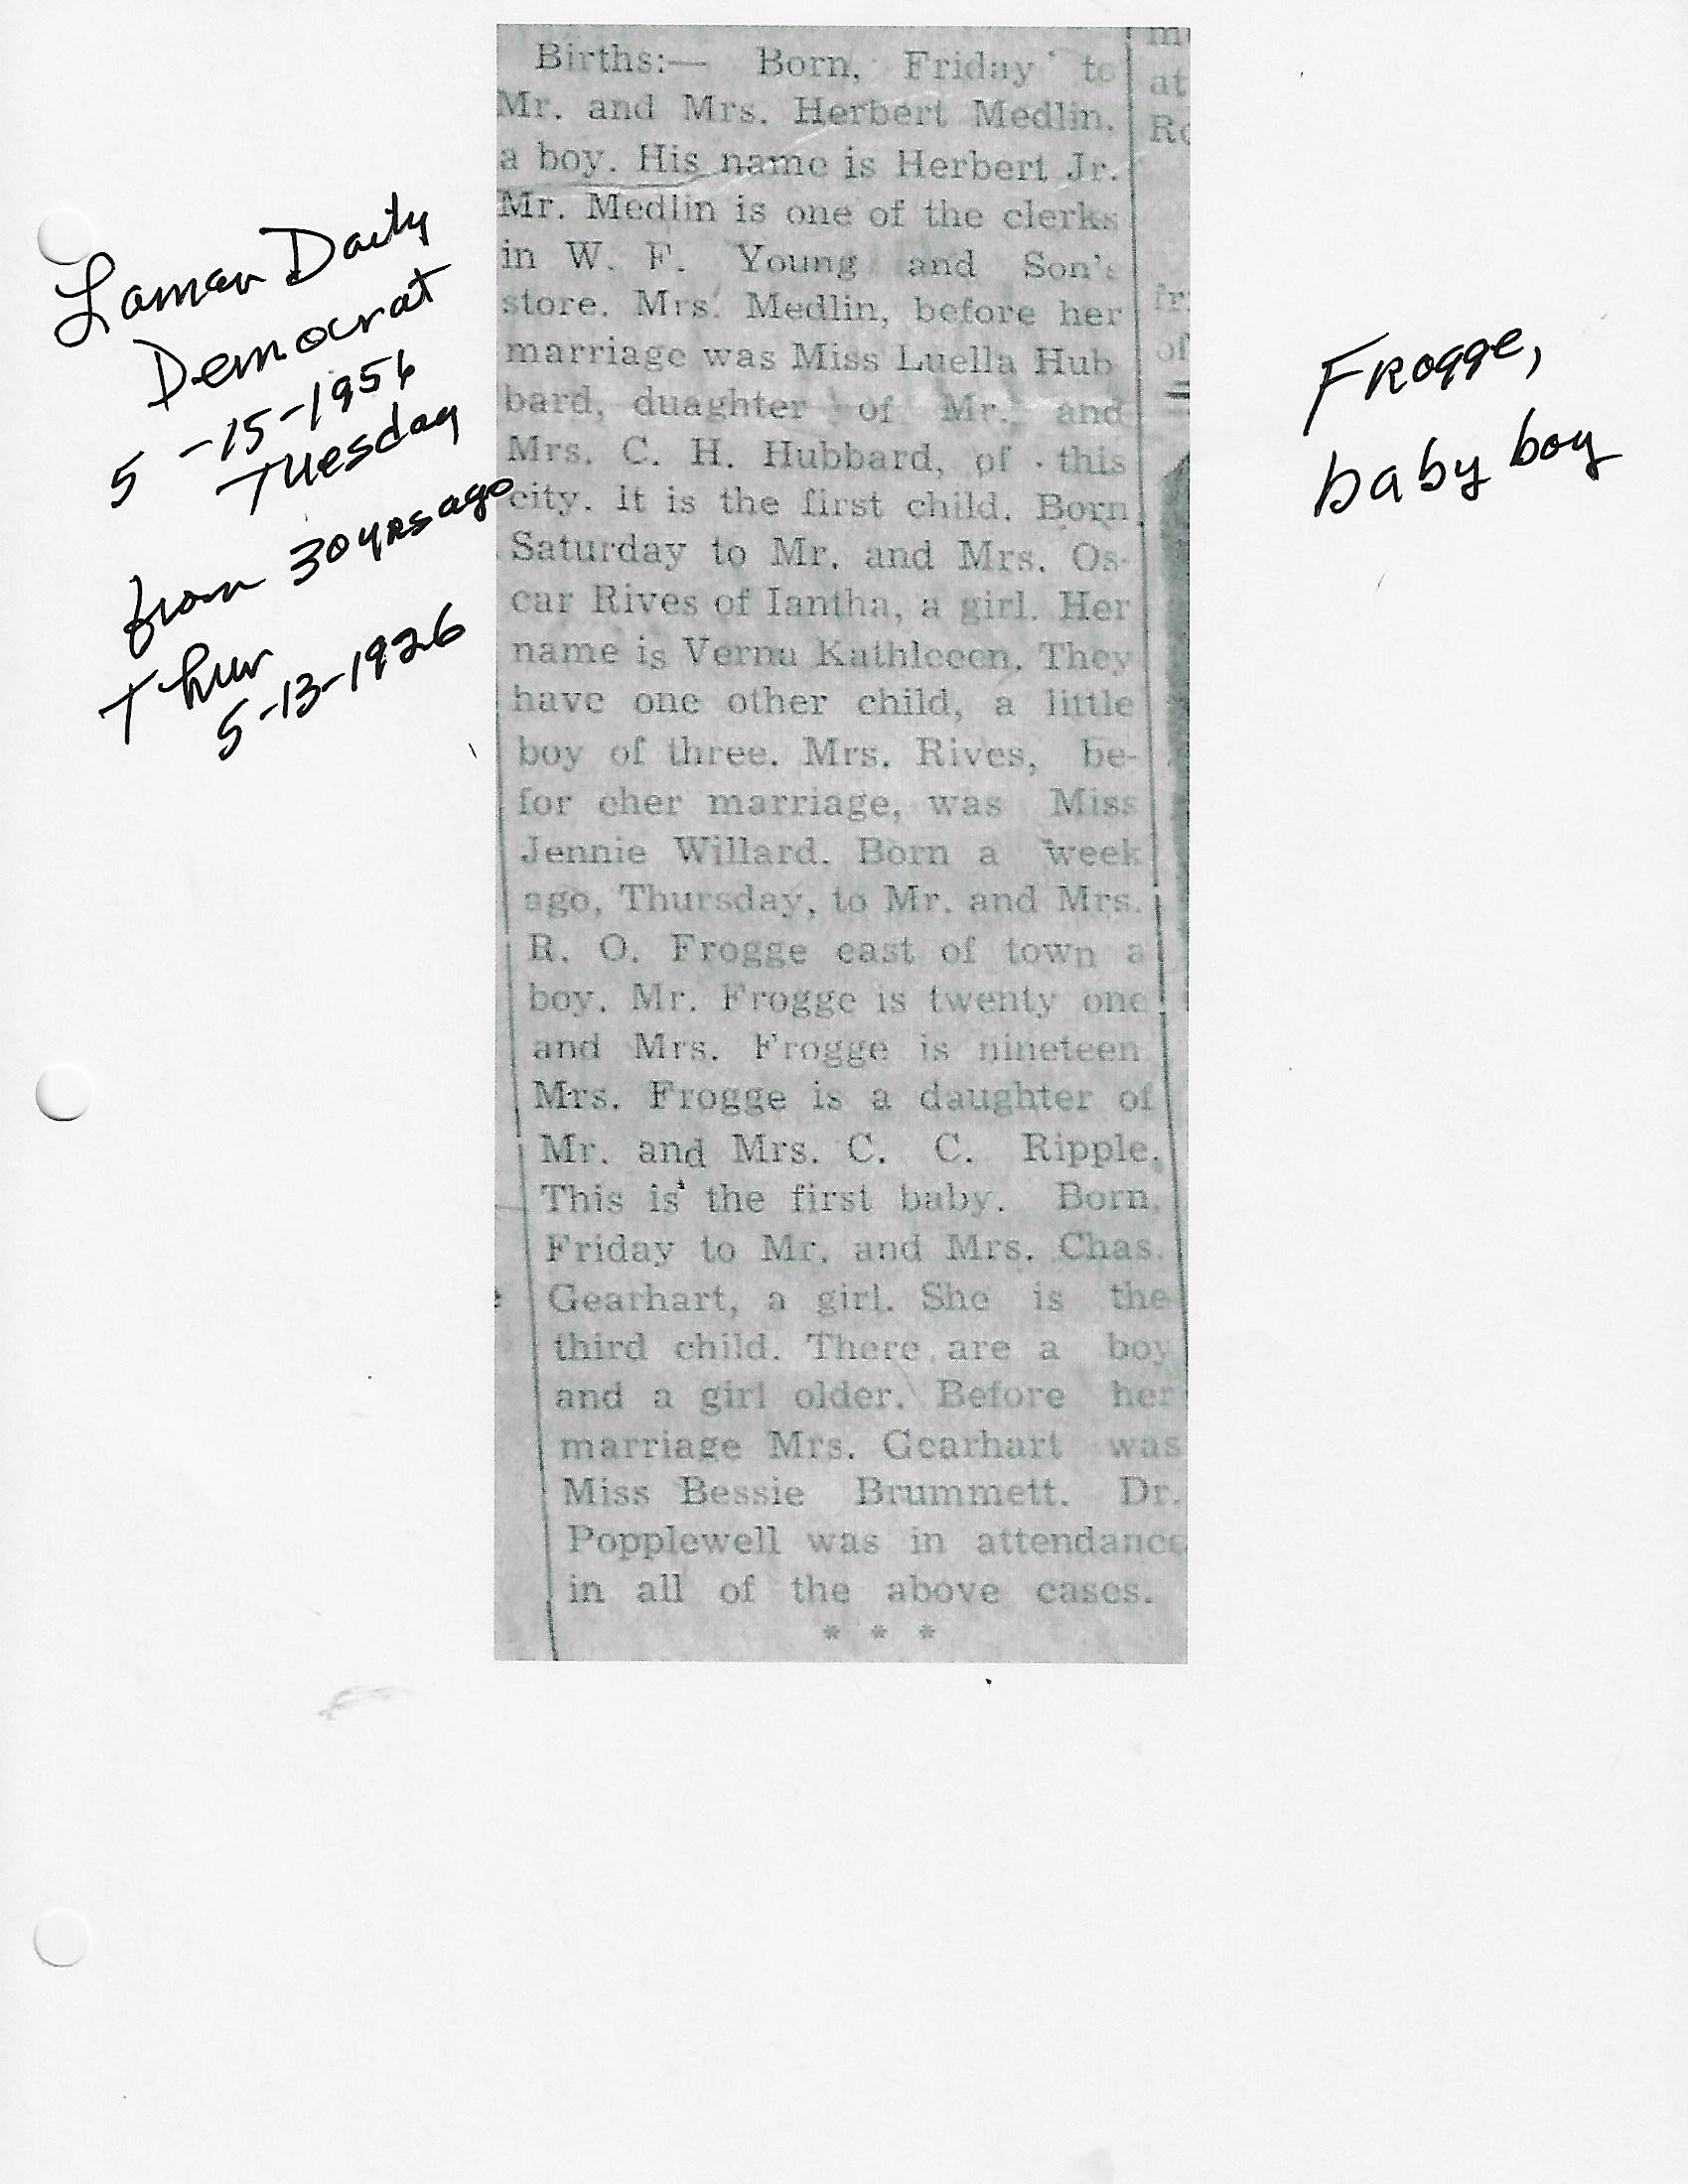 Lamar Daily
Democrat
5-15-1956
Tuesday
from 30 yrs ago
Thur
5-13-1926
Births:— Born, Friday to
Mr. and Mrs. Herbert Medlin,
a boy. His name is Herbert Jr.
Mr. Medlin is one of the clerks
in W. F. Young and Son's
store. Mrs. Medlin, before her
marriage was Miss Luella Hub-
bard, duaghter of Mr. and
Mrs. C. H. Hubbard, of this
city. It is the first child. Born
Saturday to Mr. and Mrs. Os-
car Rives of Iantha, a girl. Her
name is Verna Kathleeen. They
have one other child, a little
boy of three. Mrs. Rives, be-
for cher marriage, was Miss
Jennie Willard. Born a week
ago, Thursday, to Mr. and Mrs.
R. O. Frogge east of town a
boy. Mr. Frogge is twenty one
and Mrs. Frogge is nineteen
Mrs. Frogge is a daughter of
Mr. and Mrs. C. C. Ripple.
This is the first baby. Born,
Friday to Mr. and Mrs. Chas.
Gearhart, a girl. She is the
third child. There are a boy
and a girl older. Before her
marriage Mrs. Gearhart was
Miss Bessie Brummett. Dr.
Popplewell was in attendance
in all of the above cases.
* * *
Frogge,
baby boy